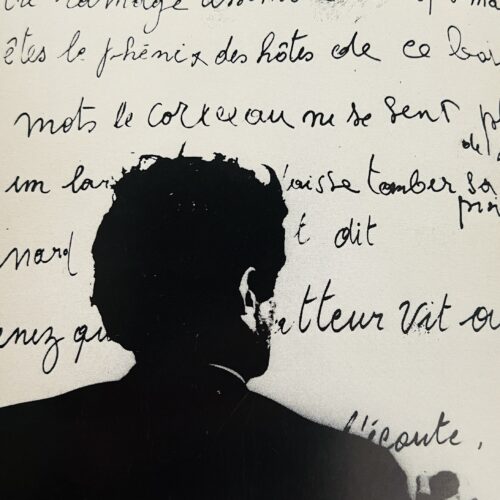 êtes le phénix des hôtes de ce boi
mots le corbeau ne se sent p
de
un lar laisse tomber sa
pro
nard t dit
enez qu tteur vit a
l'écoute,